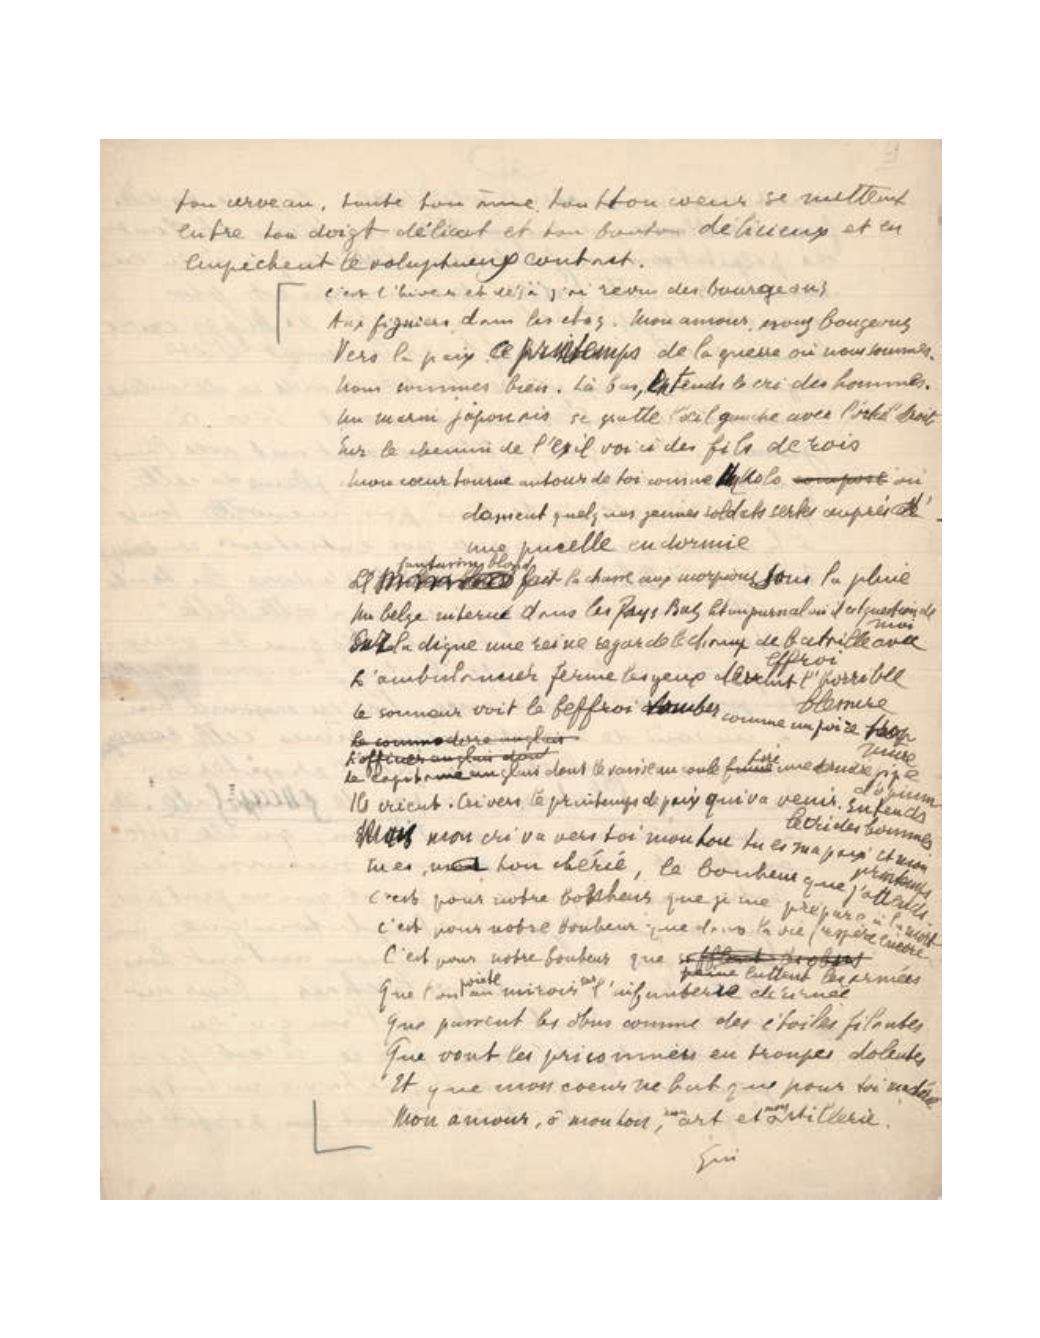 ton cerveau, toute ton âme, tout ton coeur se mettent
entre ton doigt délicat et ton bouton délicieux et en
empêchent le voluptueux contact.
C'est l'hiver et déjà j'ai revu des bourgeons
Aux figuiers dans les clos. Mon amour, nous bougeons
Vers la paix ce printemps de la guerre où nous sommes.
Nous sommes bien. Là bas, entends le cri des hommes.
Un marin japonais se gratte l'oeil gauche avec l'orteil droit
Sur le chemin de l'exil voici des fils de rois
Mon coeur tourne autour de toi comme un kolo composé où
dansent quelques jeunes soldats serbes auprès d'
une pucelle endormie
fantassin blond
Le fait la chasse aux morpions sous la pluie
Un belge interné dans les Pays Bas lit un journal où il est question de
moi
Sur la digue une reine regarde le champ de bataille avec
effroi
L'ambulancier ferme les yeux devant l'horrible
blessure
Le sonneur voit le beffroi tomber comme une poire trop
mûre
le commodore anglais
L'officier anglais dont
Le capitaine anglais dont le vaisseau coule fume tire une tendre pipe
d'opium
Ils crient. Cri vers le printemps de paix qui va venir. Entends
le cri des hommes
Mais mon cri va vers toi mon Lou tu es ma paix et mon
printemps
tu es, ma Lou chérie, le bonheur que j'attends.
C'est pour notre bonheur que je me prépare à la mort
C'est pour notre bonheur que dans la vie j'espère encore
C'est pour notre bonheur que sifflent des obus
luttent les armées
Que l'on pointe au miroir sur l'infanterie décimée
Que passent les obus comme des étoiles filantes
Que vont les prisonniers en troupes dolentes
Et que mon coeur ne bat que pour toi ma chérie
Mon amour, ô mon Lou, mon art et mon artillerie.
Gui